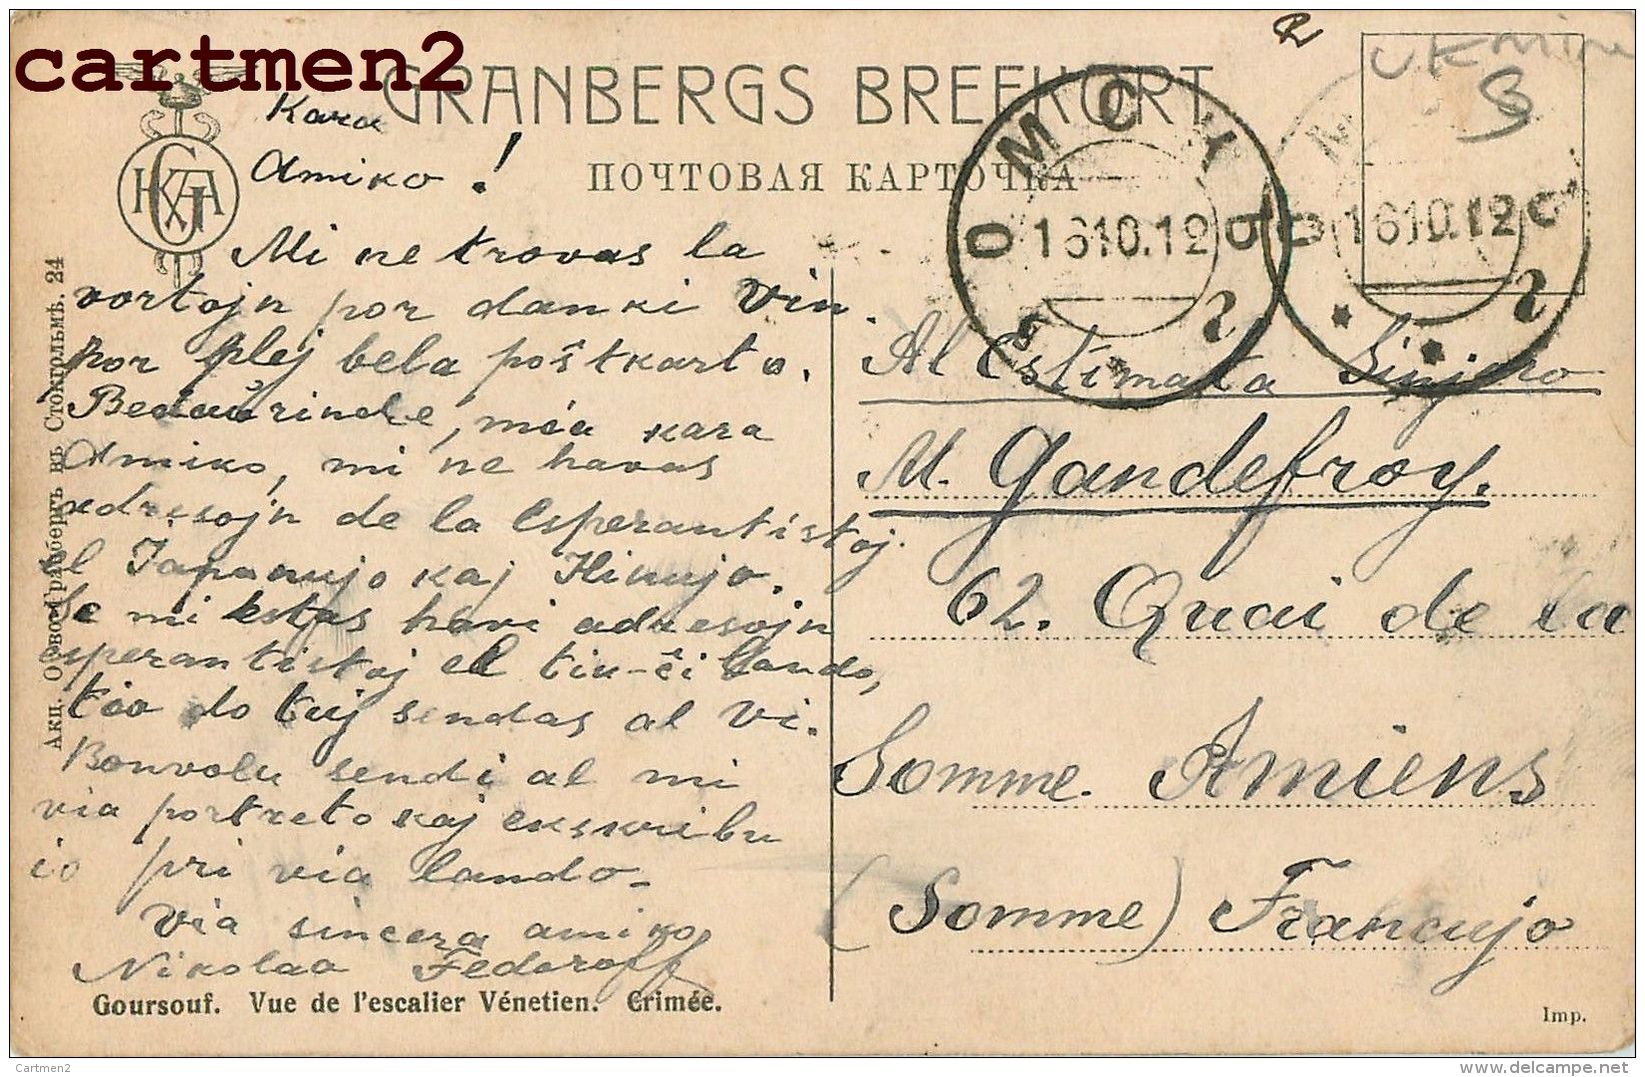 cartmen2
GRANBERGS BREFKORT
ПОЧТОВАЯ КАРТОЧКА
Ukraine
Kara
Amiko!
Mi ne trovas la
vortojn por danki Vin
por plej bela poŝtkarto.
Bedaŭrinde, mia kara
amiko, mi ne havas
adresojn de la Esperantistoj
el Japanujo kaj Ĥinujo.
Se mi estas havi adresojn
sperantistoj el tiu-ĉi lando,
tio do tuj sendas al Vi.
Bonvolu sendi al mi
via portreto kaj ekskribu
io pri via lando.
Via sincera amiko
Nikolao Fedoroff
ОМСКЪ
16.10.12
16.10.12
Al Estimata Sinjoro
M. Gandefroy.
62. Quai de la
Somme. Amiens
(Somme) Francujo
Акц. О-во Гранбергъ въ Стокгольмѣ. 24
Goursouf. Vue de l'escalier Vénetien. Crimée.
Imp.
Cartmen2
delcampe.net